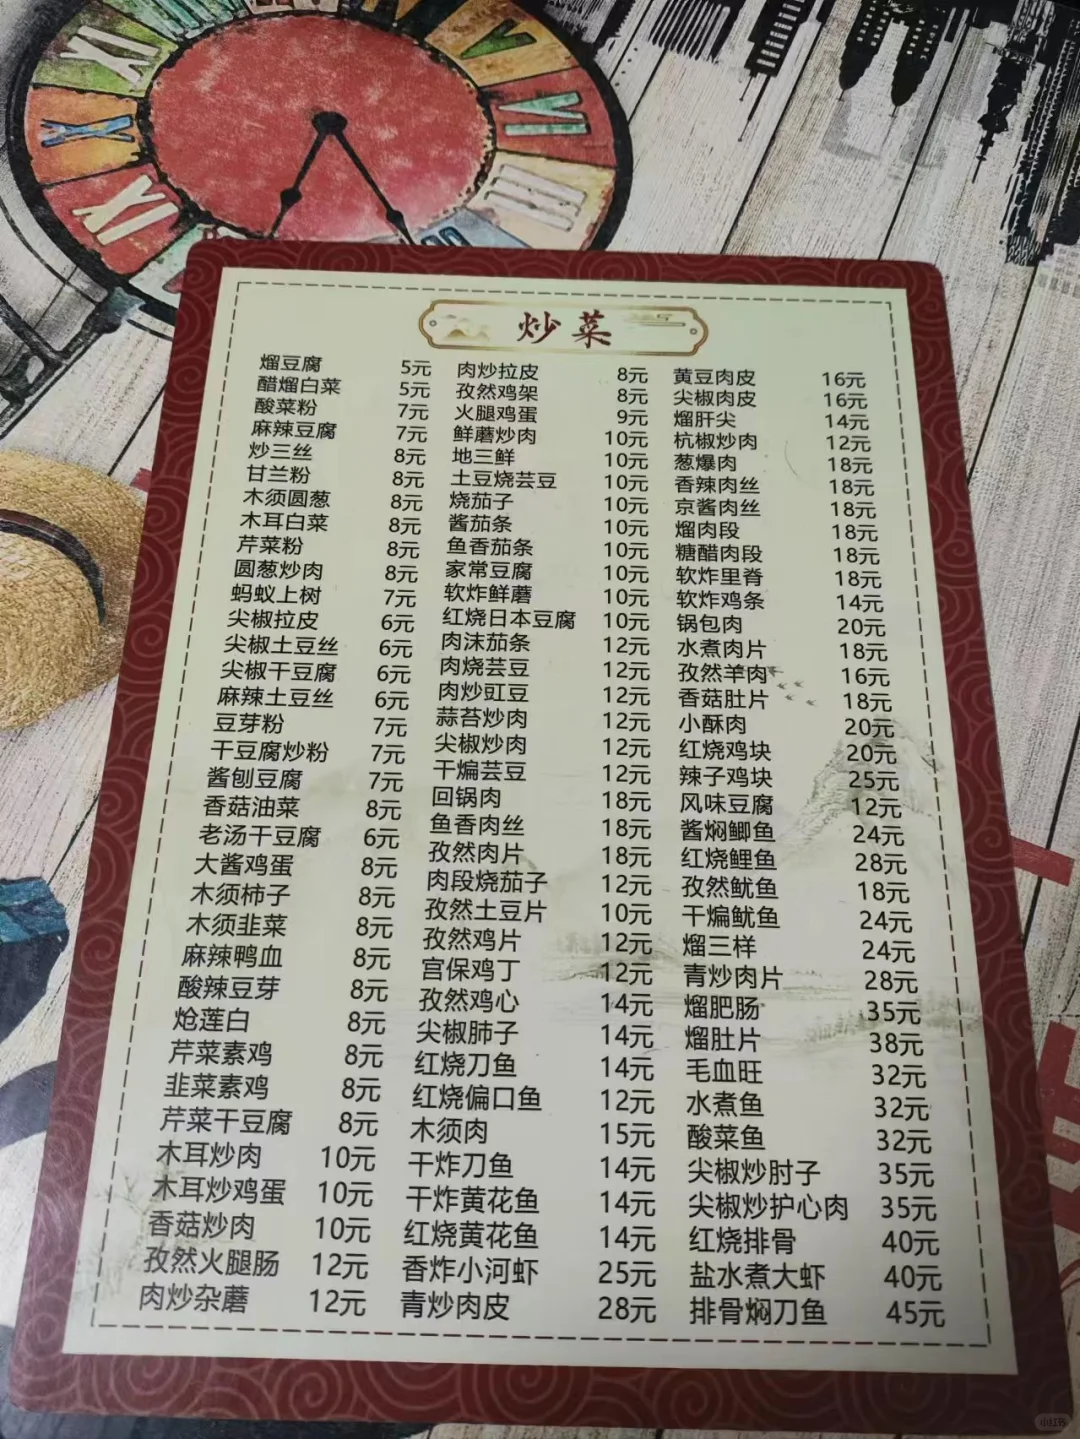 炒菜
熘豆腐 5元
醋熘白菜 5元
酸菜粉 7元
麻辣豆腐 7元
炒三丝 8元
甘兰粉 8元
木须圆葱 8元
木耳白菜 8元
芹菜粉 8元
圆葱炒肉 8元
蚂蚁上树 7元
尖椒拉皮 6元
尖椒土豆丝 6元
尖椒干豆腐 6元
麻辣土豆丝 6元
豆芽粉 7元
干豆腐炒粉 7元
酱刨豆腐 7元
香菇油菜 8元
老汤干豆腐 6元
大酱鸡蛋 8元
木须柿子 8元
木须韭菜 8元
麻辣鸭血 8元
酸辣豆芽 8元
炝莲白 8元
芹菜素鸡 8元
韭菜素鸡 8元
芹菜干豆腐 8元
木耳炒肉 10元
木耳炒鸡蛋 10元
香菇炒肉 10元
孜然火腿肠 12元
肉炒杂蘑 12元
肉炒拉皮 8元
孜然鸡架 8元
火腿鸡蛋 9元
鲜蘑炒肉 10元
地三鲜 10元
土豆烧芸豆 10元
烧茄子 10元
酱茄条 10元
鱼香茄条 10元
家常豆腐 10元
软炸鲜蘑 10元
红烧日本豆腐 10元
肉沫茄条 12元
肉烧芸豆 12元
肉炒豇豆 12元
蒜苔炒肉 12元
尖椒炒肉 12元
干煸芸豆 12元
回锅肉 18元
鱼香肉丝 18元
孜然肉片 18元
肉段烧茄子 12元
孜然土豆片 10元
孜然鸡片 12元
宫保鸡丁 12元
孜然鸡心 14元
尖椒肺子 14元
红烧刀鱼 14元
红烧偏口鱼 12元
木须肉 15元
干炸刀鱼 14元
干炸黄花鱼 14元
红烧黄花鱼 14元
香炸小河虾 25元
青炒肉皮 28元
黄豆肉皮 16元
尖椒肉皮 16元
熘肝尖 14元
杭椒炒肉 12元
葱爆肉 18元
香辣肉丝 18元
京酱肉丝 18元
熘肉段 18元
糖醋肉段 18元
软炸里脊 18元
软炸鸡条 14元
锅包肉 20元
水煮肉片 18元
孜然羊肉 16元
香菇肚片 18元
小酥肉 20元
红烧鸡块 20元
辣子鸡块 25元
风味豆腐 12元
酱焖鲫鱼 24元
红烧鲤鱼 28元
孜然鱿鱼 18元
干煸鱿鱼 24元
熘三样 24元
青炒肉片 28元
熘肥肠 35元
熘肚片 38元
毛血旺 32元
水煮鱼 32元
酸菜鱼 32元
尖椒炒肘子 35元
尖椒炒护心肉 35元
红烧排骨 40元
盐水煮大虾 40元
排骨焖刀鱼 45元
小红书